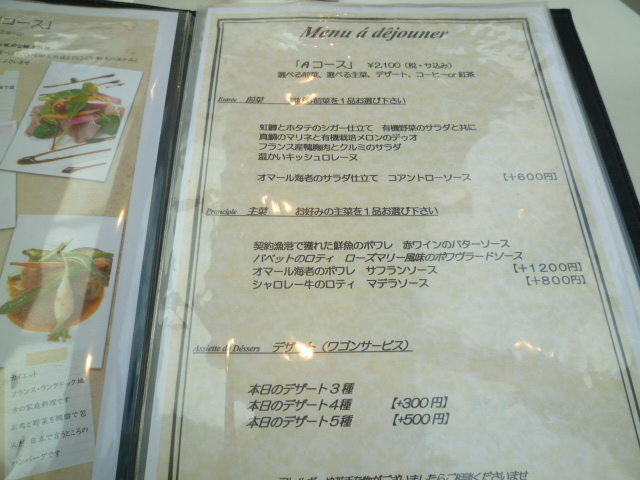 コース」
Menu á déjouner
「Aコース」 ¥2,100(税・サ込み)
選べる前菜、選べる主菜、デザート、コーヒーor 紅茶
Entrés 前菜 前菜を1品お選び下さい
虹鱒とホタテのシガー仕立て 有機野菜のサラダと共に
真鯛のマリネと有機栽培メロンのデッオ
フランス産鴨胸肉とクルミのサラダ
温かいキッシュロレーヌ
オマール海老のサラダ仕立て コアントローソース 【+600円】
Pronciple 主菜 お好みの主菜を1品お選び下さい
契約漁港で獲れた鮮魚のポワレ 赤ワインのバターソース
バベットのロティ ローズマリー風味のポワヴラードソース
オマール海老のポワレ サフランソース 【+1200円】
シャロレー牛のロティ マデラソース 【+800円】
Assiette de Déssers デザート(ワゴンサービス)
本日のデザート3種
本日のデザート4種 【+300円】
本日のデザート5種 【+500円】
ファイエット
フランス・ラングドック地
方の家庭料理です
お肉と野菜を網脂で包
んだ 日本で言うところの
ハンバーグです
ございましたらご相談くださいませ